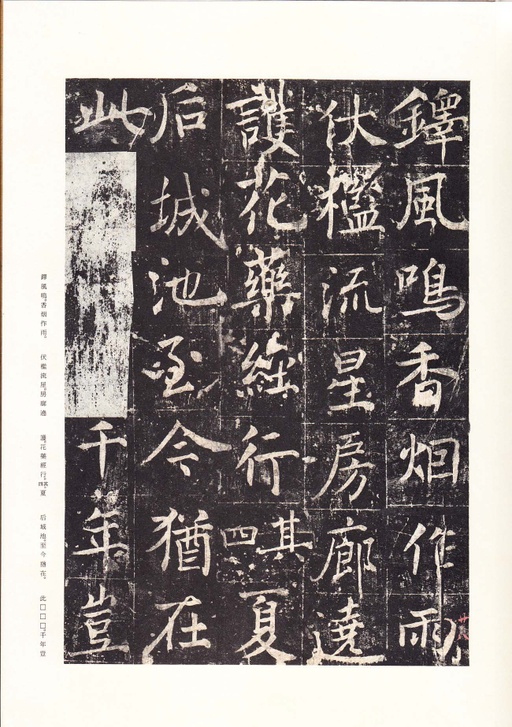 鐸風鳴香烟作雨
伏檻流星房廊遶
護花藥經行其四夏
后城池至今猶在
此千年豈
鐸風鳴。香烟作雨。 伏檻流星。房廊遶 護。花藥經行。其四。夏 后城池。至今猶在。 此□□□。千年豈